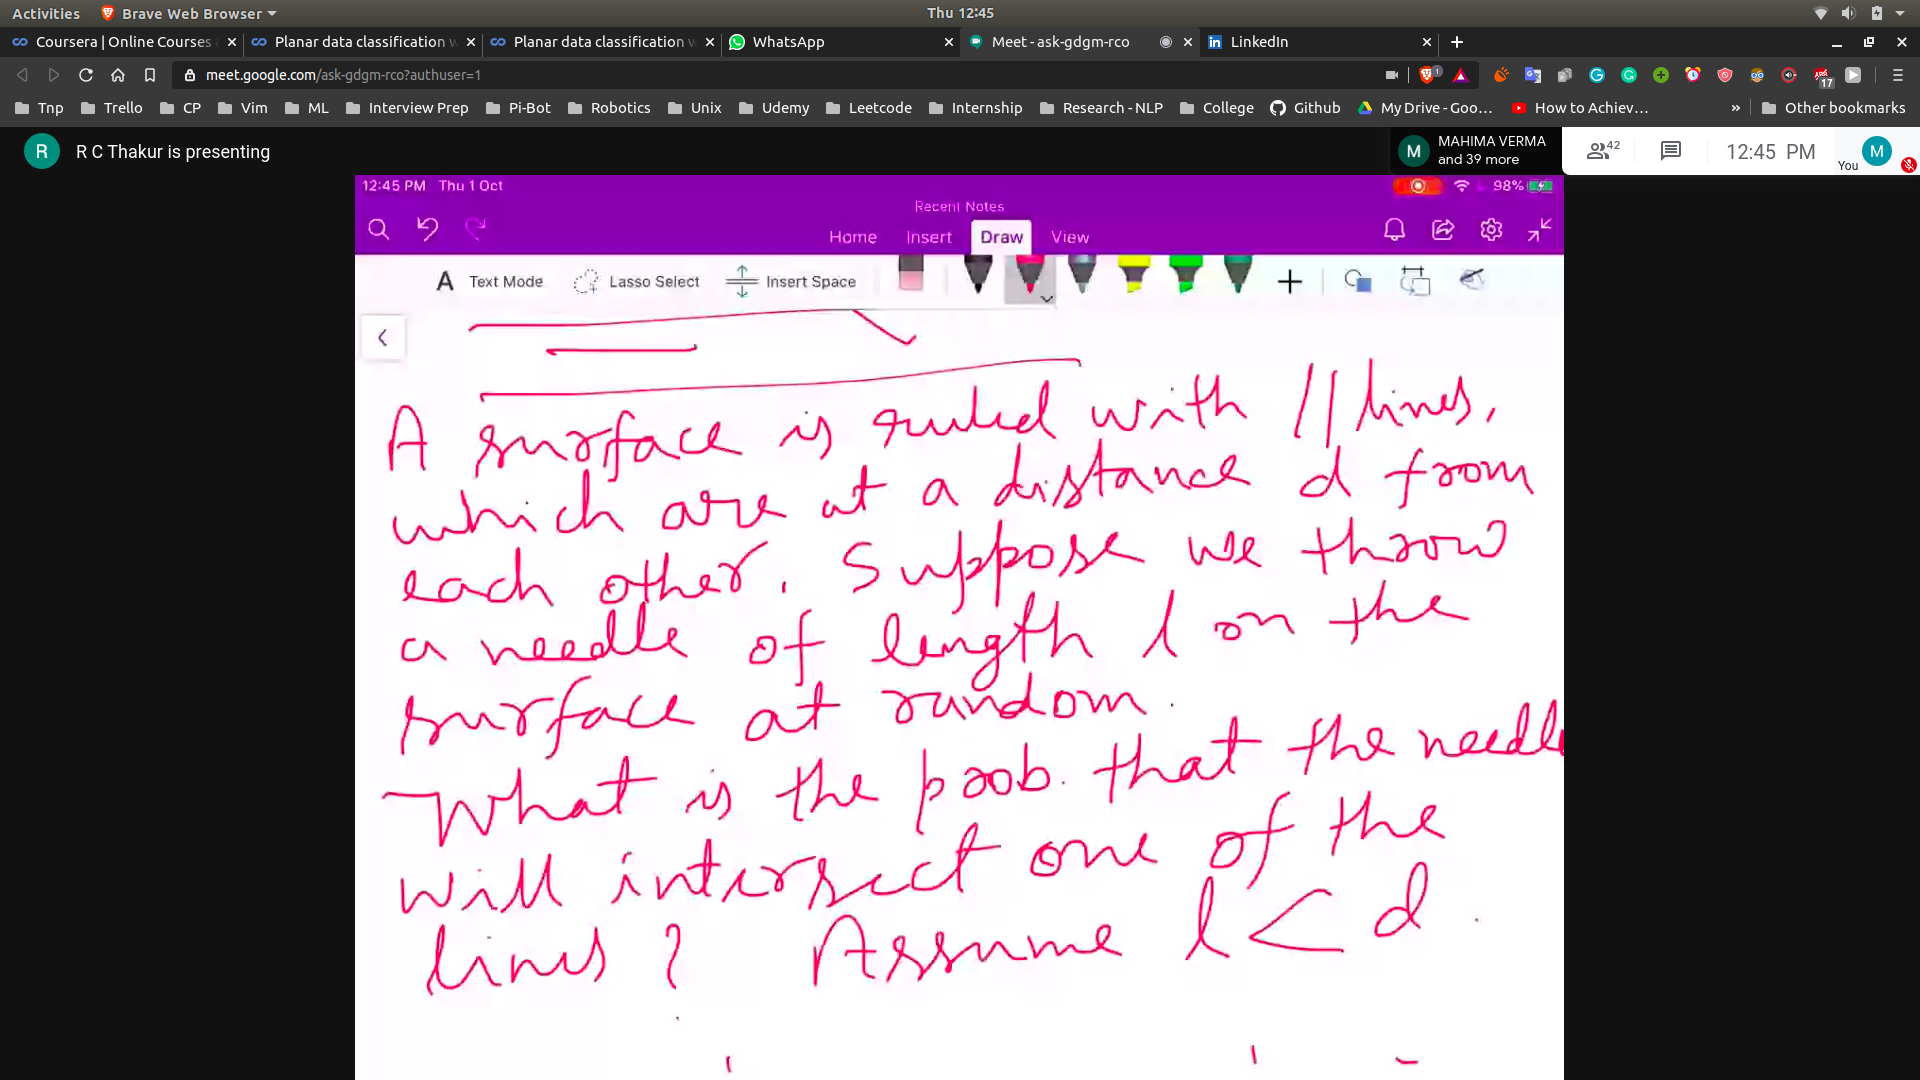 Activities Brave Web Browser Thu 12:45
Coursera | Online Courses Planar data classification w Planar data classification w WhatsApp Meet - ask-gdgm-rco LinkedIn
meet.google.com/ask-gdgm-rco?authuser=1 1 17
Tnp Trello CP Vim ML Interview Prep Pi-Bot Robotics Unix Udemy Leetcode Internship Research - NLP College Github My Drive - Goo... How to Achiev... » Other bookmarks
R R C Thakur is presenting M MAHIMA VERMA and 39 more 42 12:45 PM You M
12:45 PM Thu 1 Oct 98%
Recent Notes
Home Insert Draw View
A Text Mode Lasso Select Insert Space
A surface is ruled with // lines,
which are at a distance d from
each other. Suppose we throw
a needle of length l on the
surface at random.
What is the prob. that the needle
will intersect one of the
lines? Assume l < d.